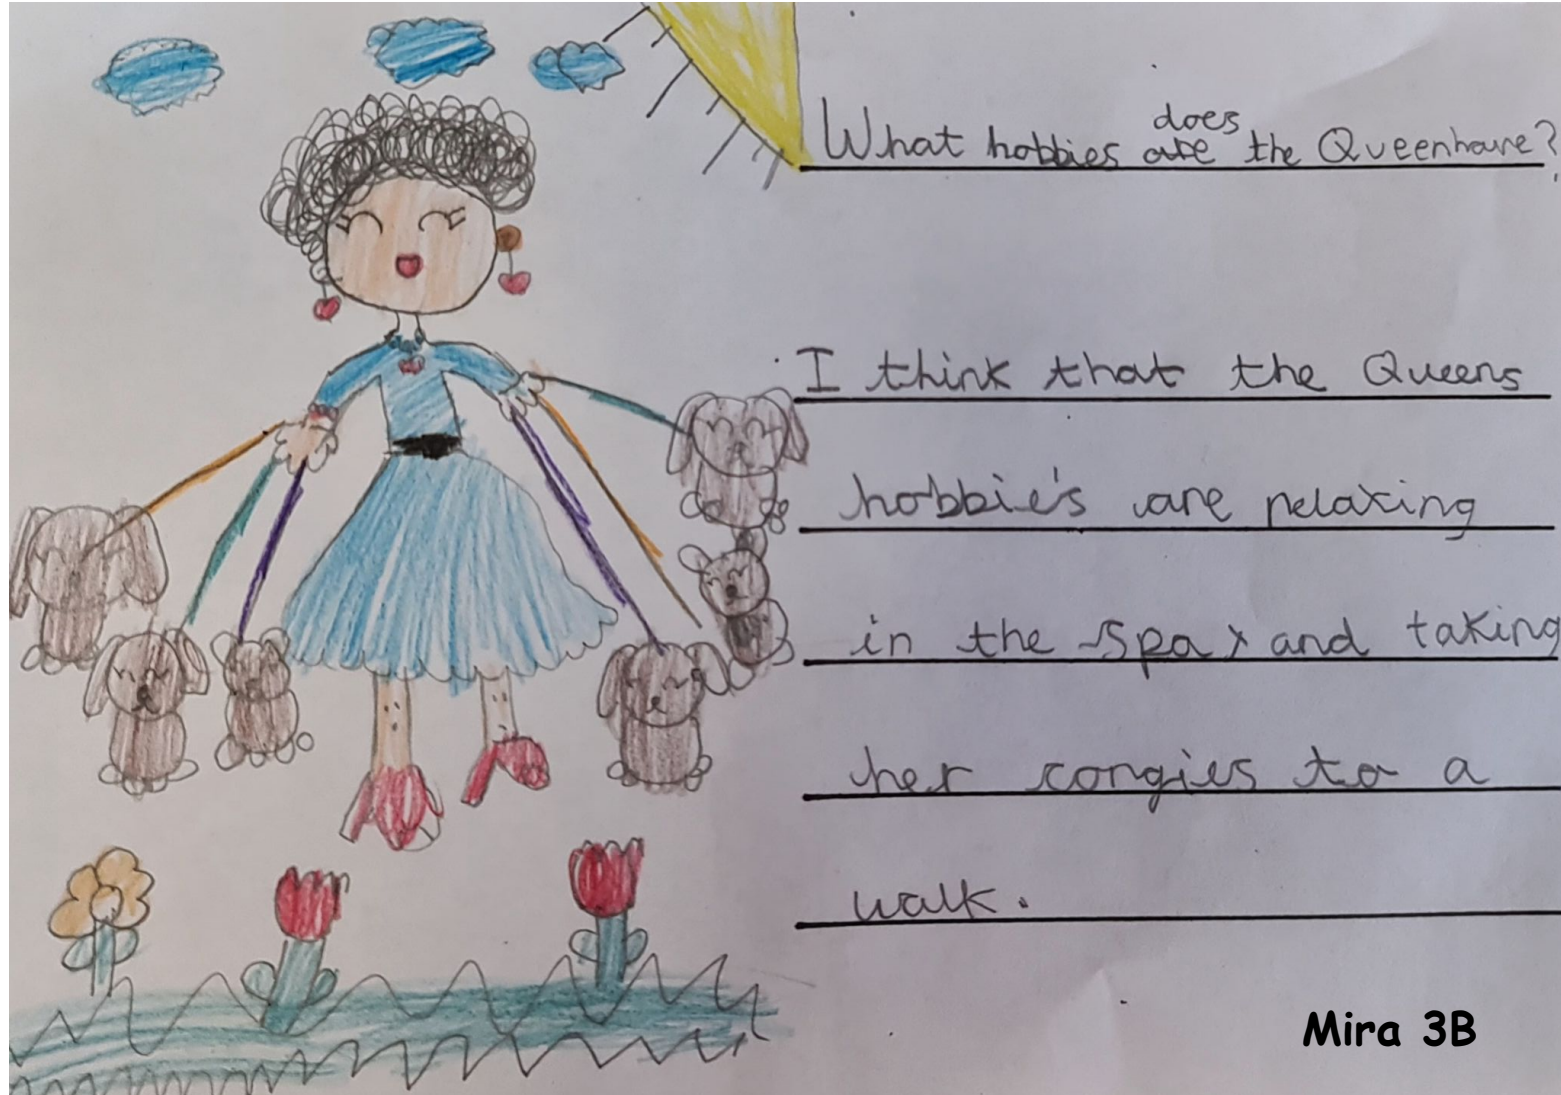 What hobbies does the Queen have?
I think that the Queens
hobbie's are relaxing
in the spa, and taking
her corgies to a
walk.
Mira 3B